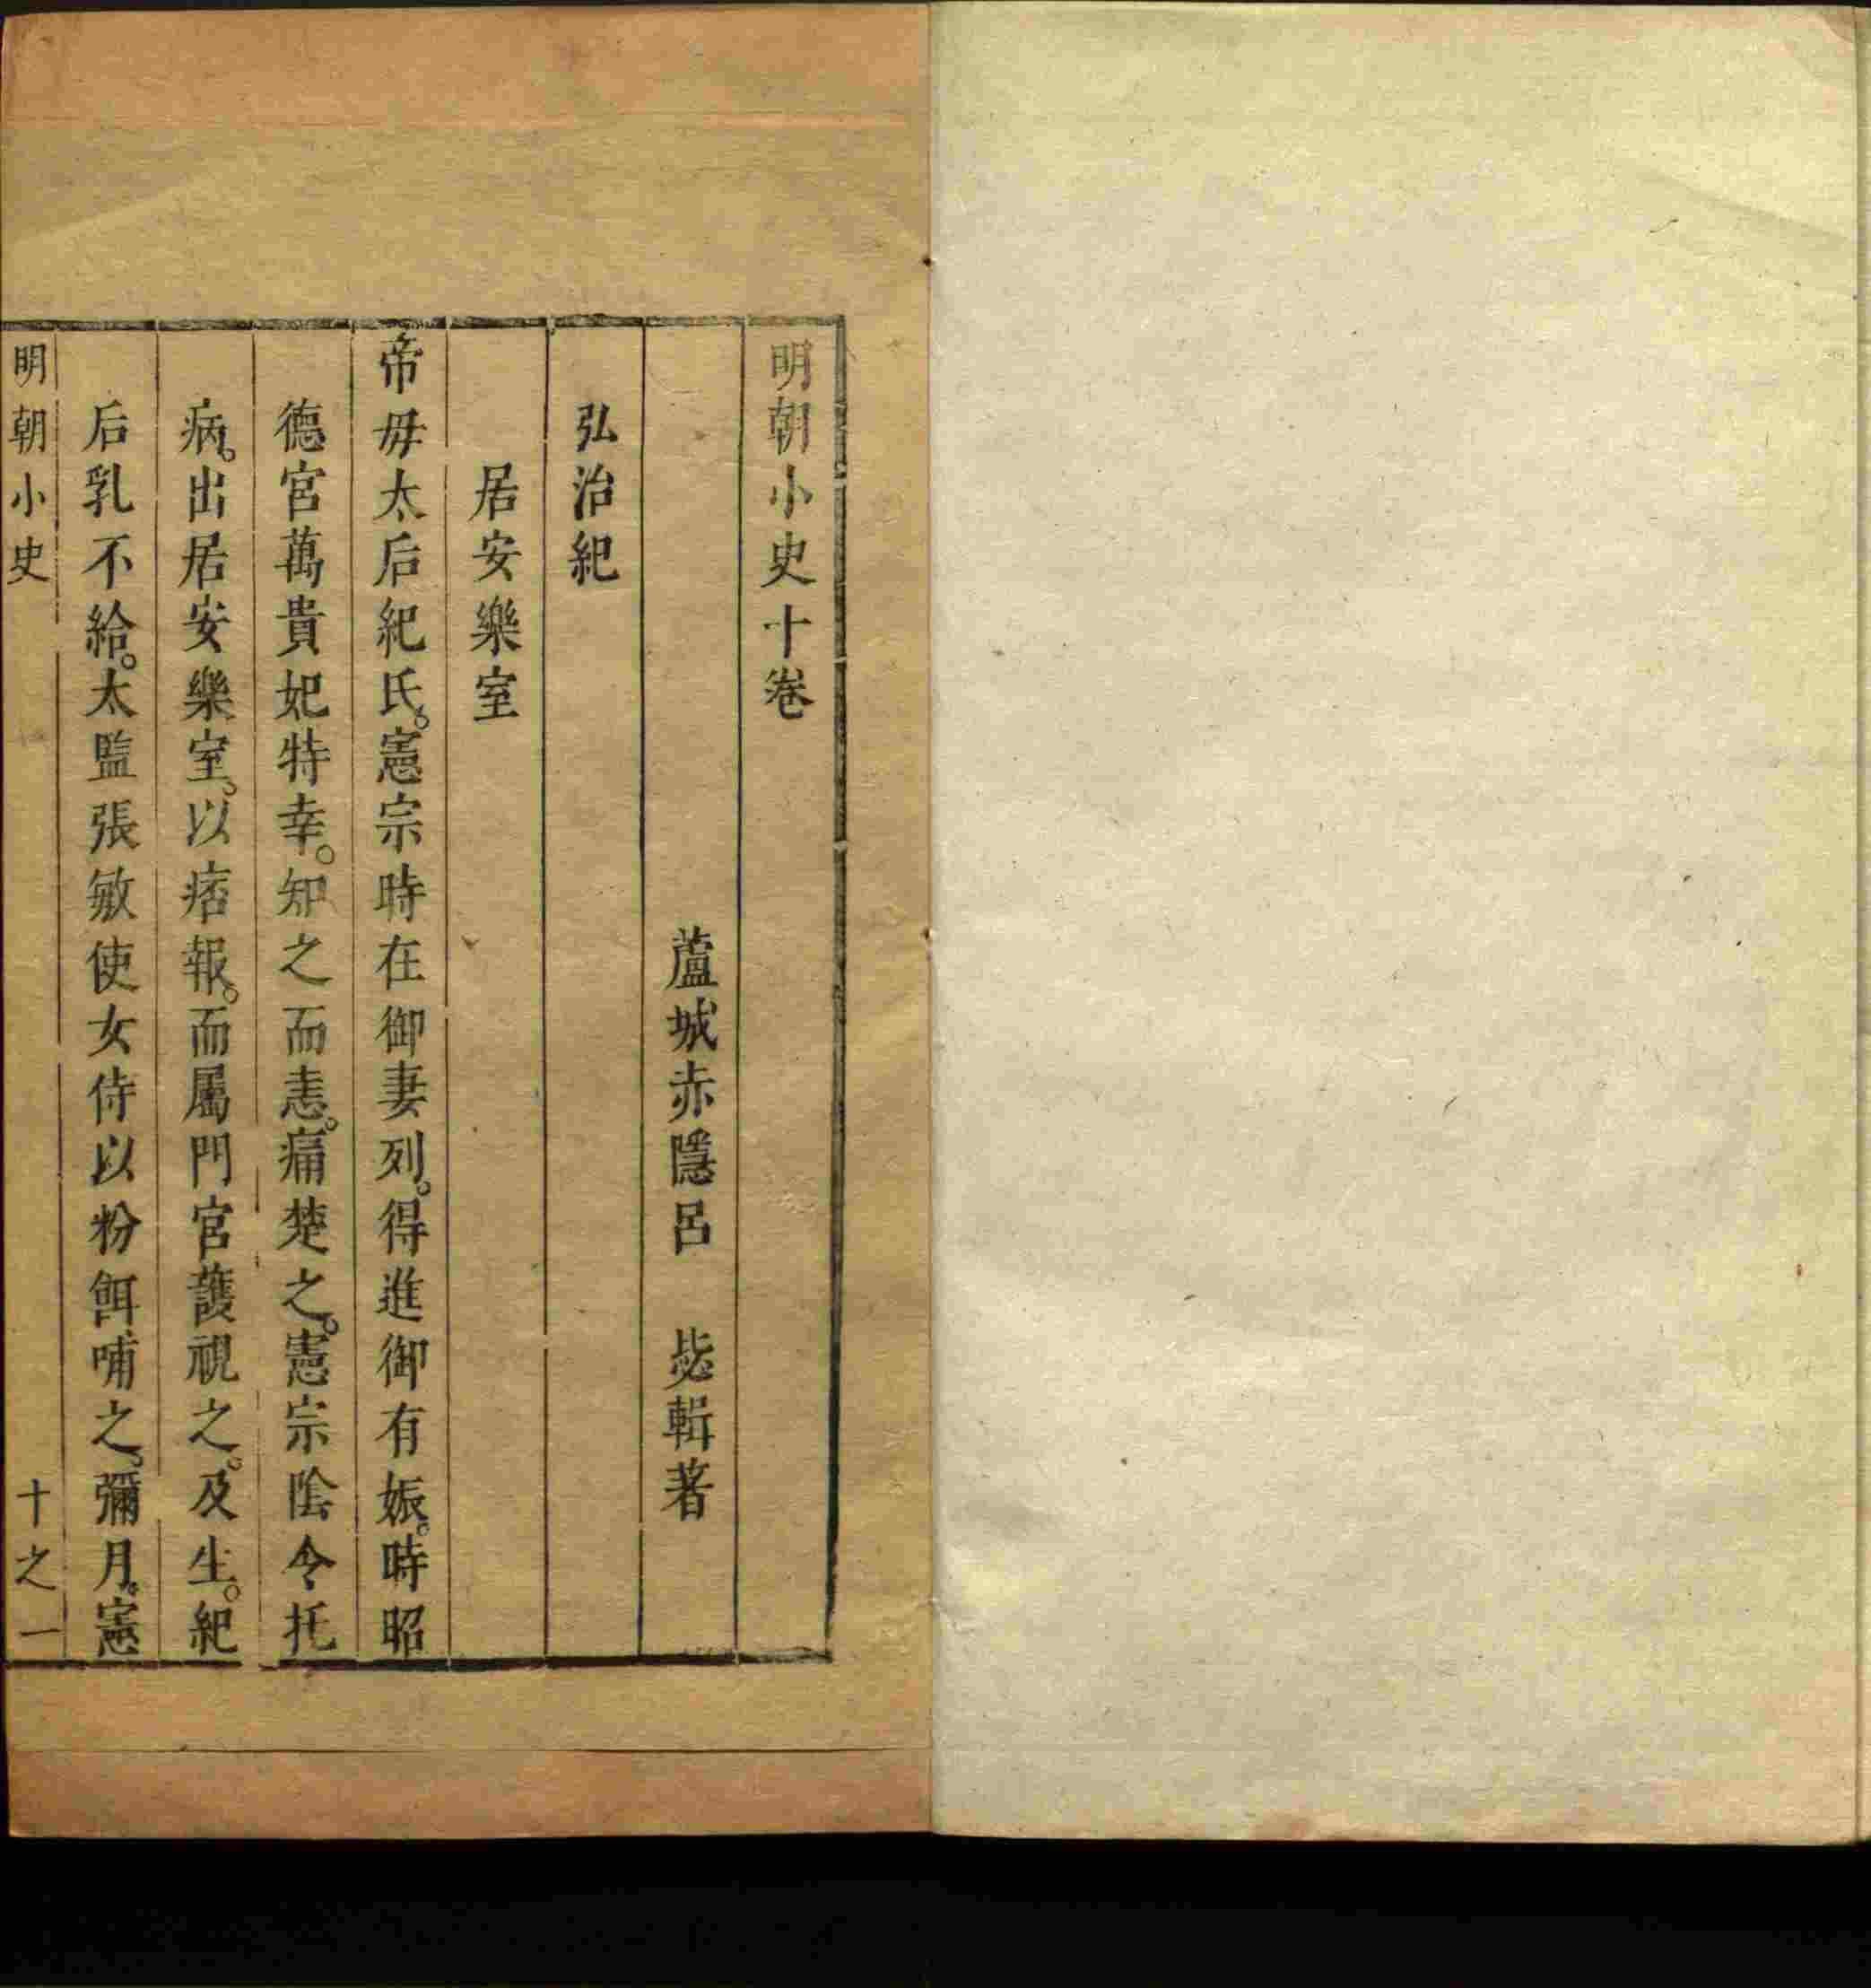 明朝小史十卷
蘆城赤隱呂　毖輯著
弘治紀
居安樂室
帝毋太后紀氏。憲宗時在御妻列。得進御有娠。時昭
德宮萬貴妃特幸。知之而恚。痛楚之。憲宗陰令托
病。出居安樂室。以痞報。而屬門官護視之。及生。紀
后乳不給。太監張敏使女侍以粉餌哺之。彌月。憲
明朝小史　十之一